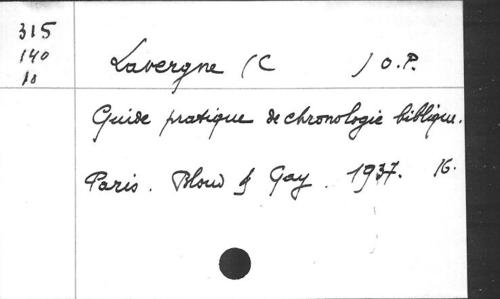 315
140
10
Lavergne (C ) O.P.
Guide pratique de chronologie biblique.
Paris. Bloud & Gay. 1937. 16.